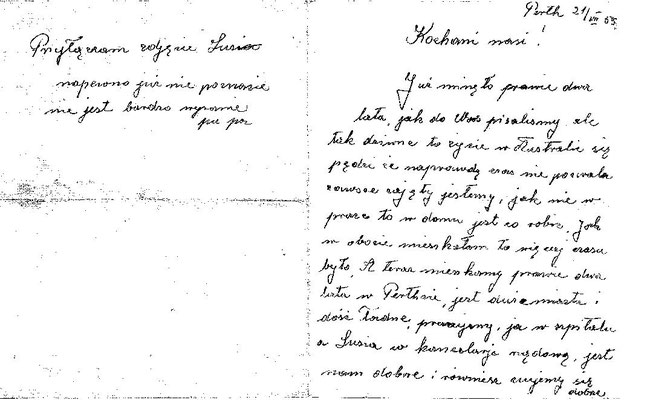 Przyłączam zdjęcie Lusia
napewno już nie poznacie
nie jest bardzo wyraźne
Perth 21/VII 65.
Kochani nasi!
Już minęło prawie dwa
lata, jak do Was pisaliśmy ale
tak dziwne to życie w Australii się
pędzi że naprawdę czas nie pozwala
zawsze zajęty jesteśmy, jak nie w
pracy to w domu jest co robić. Jak
w obozie mieszkałam to więcej czasu
było. A teraz mieszkamy prawie dwa
lata w Perthcie, jest duże miasto i
dość ładne, pracujemy, ja w szpitalu
a Lusia w kancelarje rządową, jest
nam dobrze i również czujemy się
dobrze